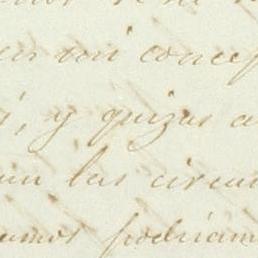 en mi concep
, y quizas a
un las circun
amos podriam